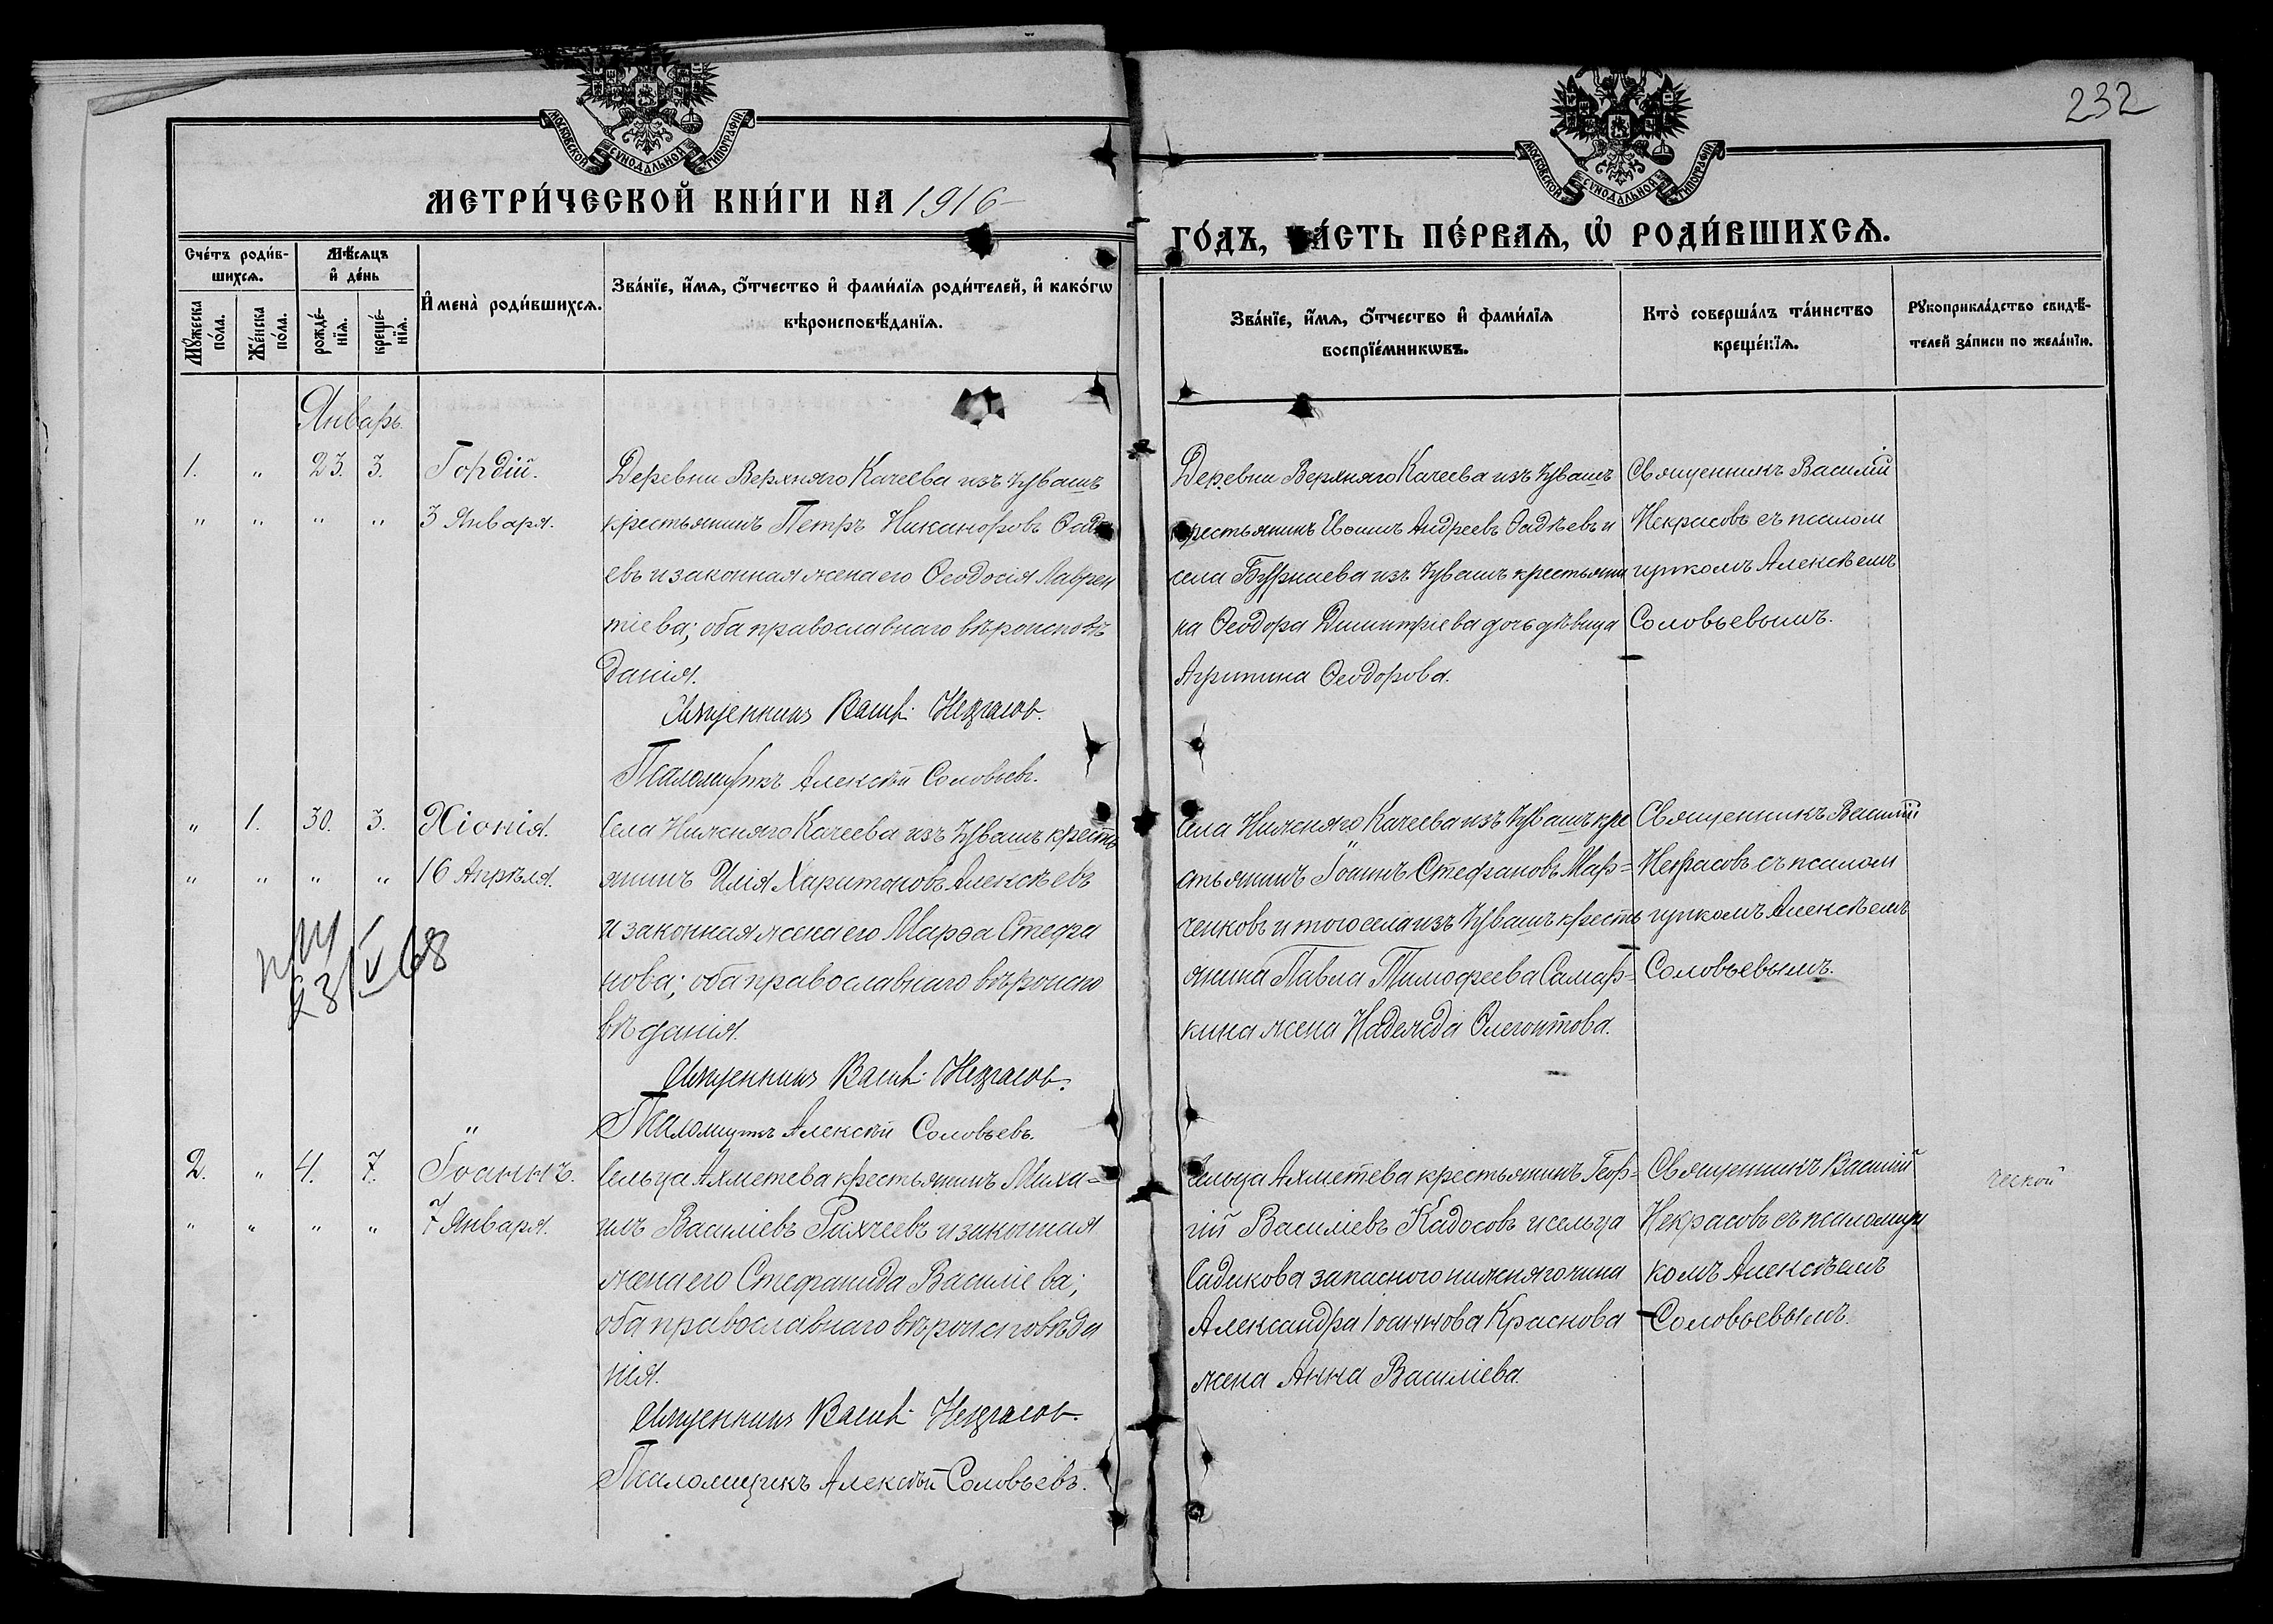 232
МОСКОВСКОЙ СѴНОДАЛЬНОЙ ТИПОГРАФІИ
МОСКОВСКОЙ СѴНОДАЛЬНОЙ ТИПОГРАФІИ
МЕТРИ́ЧЕСКОЙ КНИ́ГИ НА 1916
ГО́ДЪ, ЧА́СТЬ ПЕ́РВАѦ, Ѡ҆ РОДИ́ВШИХСѦ.
Сче́тъ роди́в-
шихсѧ.
Мѣ́сѧцъ
и҆ де́нь
Мꙋ́жеска
по́ла.
Же́нска
по́ла.
рожде́-
нїѧ.
креще́-
нїѧ.
И҆мена̀ роди́вшихсѧ.
Зва́нїе, и҆́мѧ, ѻ҆́тчество и҆ фами́лїѧ роди́телей, и҆ како́гѡ
вѣроисповѣ́данїѧ.
Зва́нїе, и҆́мѧ, ѻ҆́тчество и҆ фами́лїѧ
воспрїе́мникѡвъ.
Кто̀ соверша́лъ та́инство
креще́нїѧ.
Рꙋкоприкла́дство свидѣ́-
телей за́писи по жела́нїю.
Январь.
1. " 23. 3. Гордій.
" " " " 3 Января.
Деревни Верхняго Качеева изъ Чувашъ
крестьянинъ Петръ Никаноровъ Ѳадѣ
евъ и законная жена его Ѳеодосія Лаврен
тіева; оба православнаго вѣроисповѣ
данія.
Священникъ Васил. Некрасов.
Псаломщикъ Алексѣй Соловьевъ.
Деревни Верхняго Качеева изъ Чувашъ
крестьянинъ Евѳимъ Андреевъ Ѳадѣевъ и
села Бурнаева изъ Чувашъ крестьяни
на Ѳеодора Димитріева дочь дѣвица
Агрипина Ѳеодорова.
Священникъ Василій
Некрасовъ съ псалом
щикомъ Алексѣемъ
Соловьевымъ.
" 1. 30. 3. Хіонія.
" " " " 16 Апрѣля.
23/V 68
Села Нижняго Качеева изъ Чувашъ кресть
янинъ Илія Харитоновъ Алексѣевъ
и законная жена его Марѳа Стефа
нова; оба православнаго вѣроиспо
вѣданія.
Священникъ Васил. Некрасов.
Псаломщикъ Алексѣй Соловьевъ.
Села Нижняго Качеева изъ Чувашъ кре
стьянинъ Іоаннъ Стефановъ Мар=
ченковъ и того села изъ Чувашъ кресть
янина Павла Тимофеева Самар=
кина жена Надежда Олегонтова.
Священникъ Василій
Некрасовъ съ псалом
щикомъ Алексѣемъ
Соловьевымъ.
2. " 4. 7. Іоаннъ.
" " " " 7 Января.
Сельца Ахметева крестьянинъ Миха=
илъ Василіевъ Рихчеевъ и законная
жена его Стефанида Василіева;
оба православнаго вѣроисповѣда
нія.
Священникъ Васил. Некрасов.
Псаломщикъ Алексѣй Соловьевъ.
Сельца Ахметева крестьянинъ Геор=
гій Василіевъ Кадосовъ и сельца
Садикова запасного нижняго чина
Александра Іоаннова Краснова
жена Анна Василіева.
Священникъ Василій
Некрасовъ съ псаломщи
комъ Алексѣемъ
Соловьевымъ.
ческой